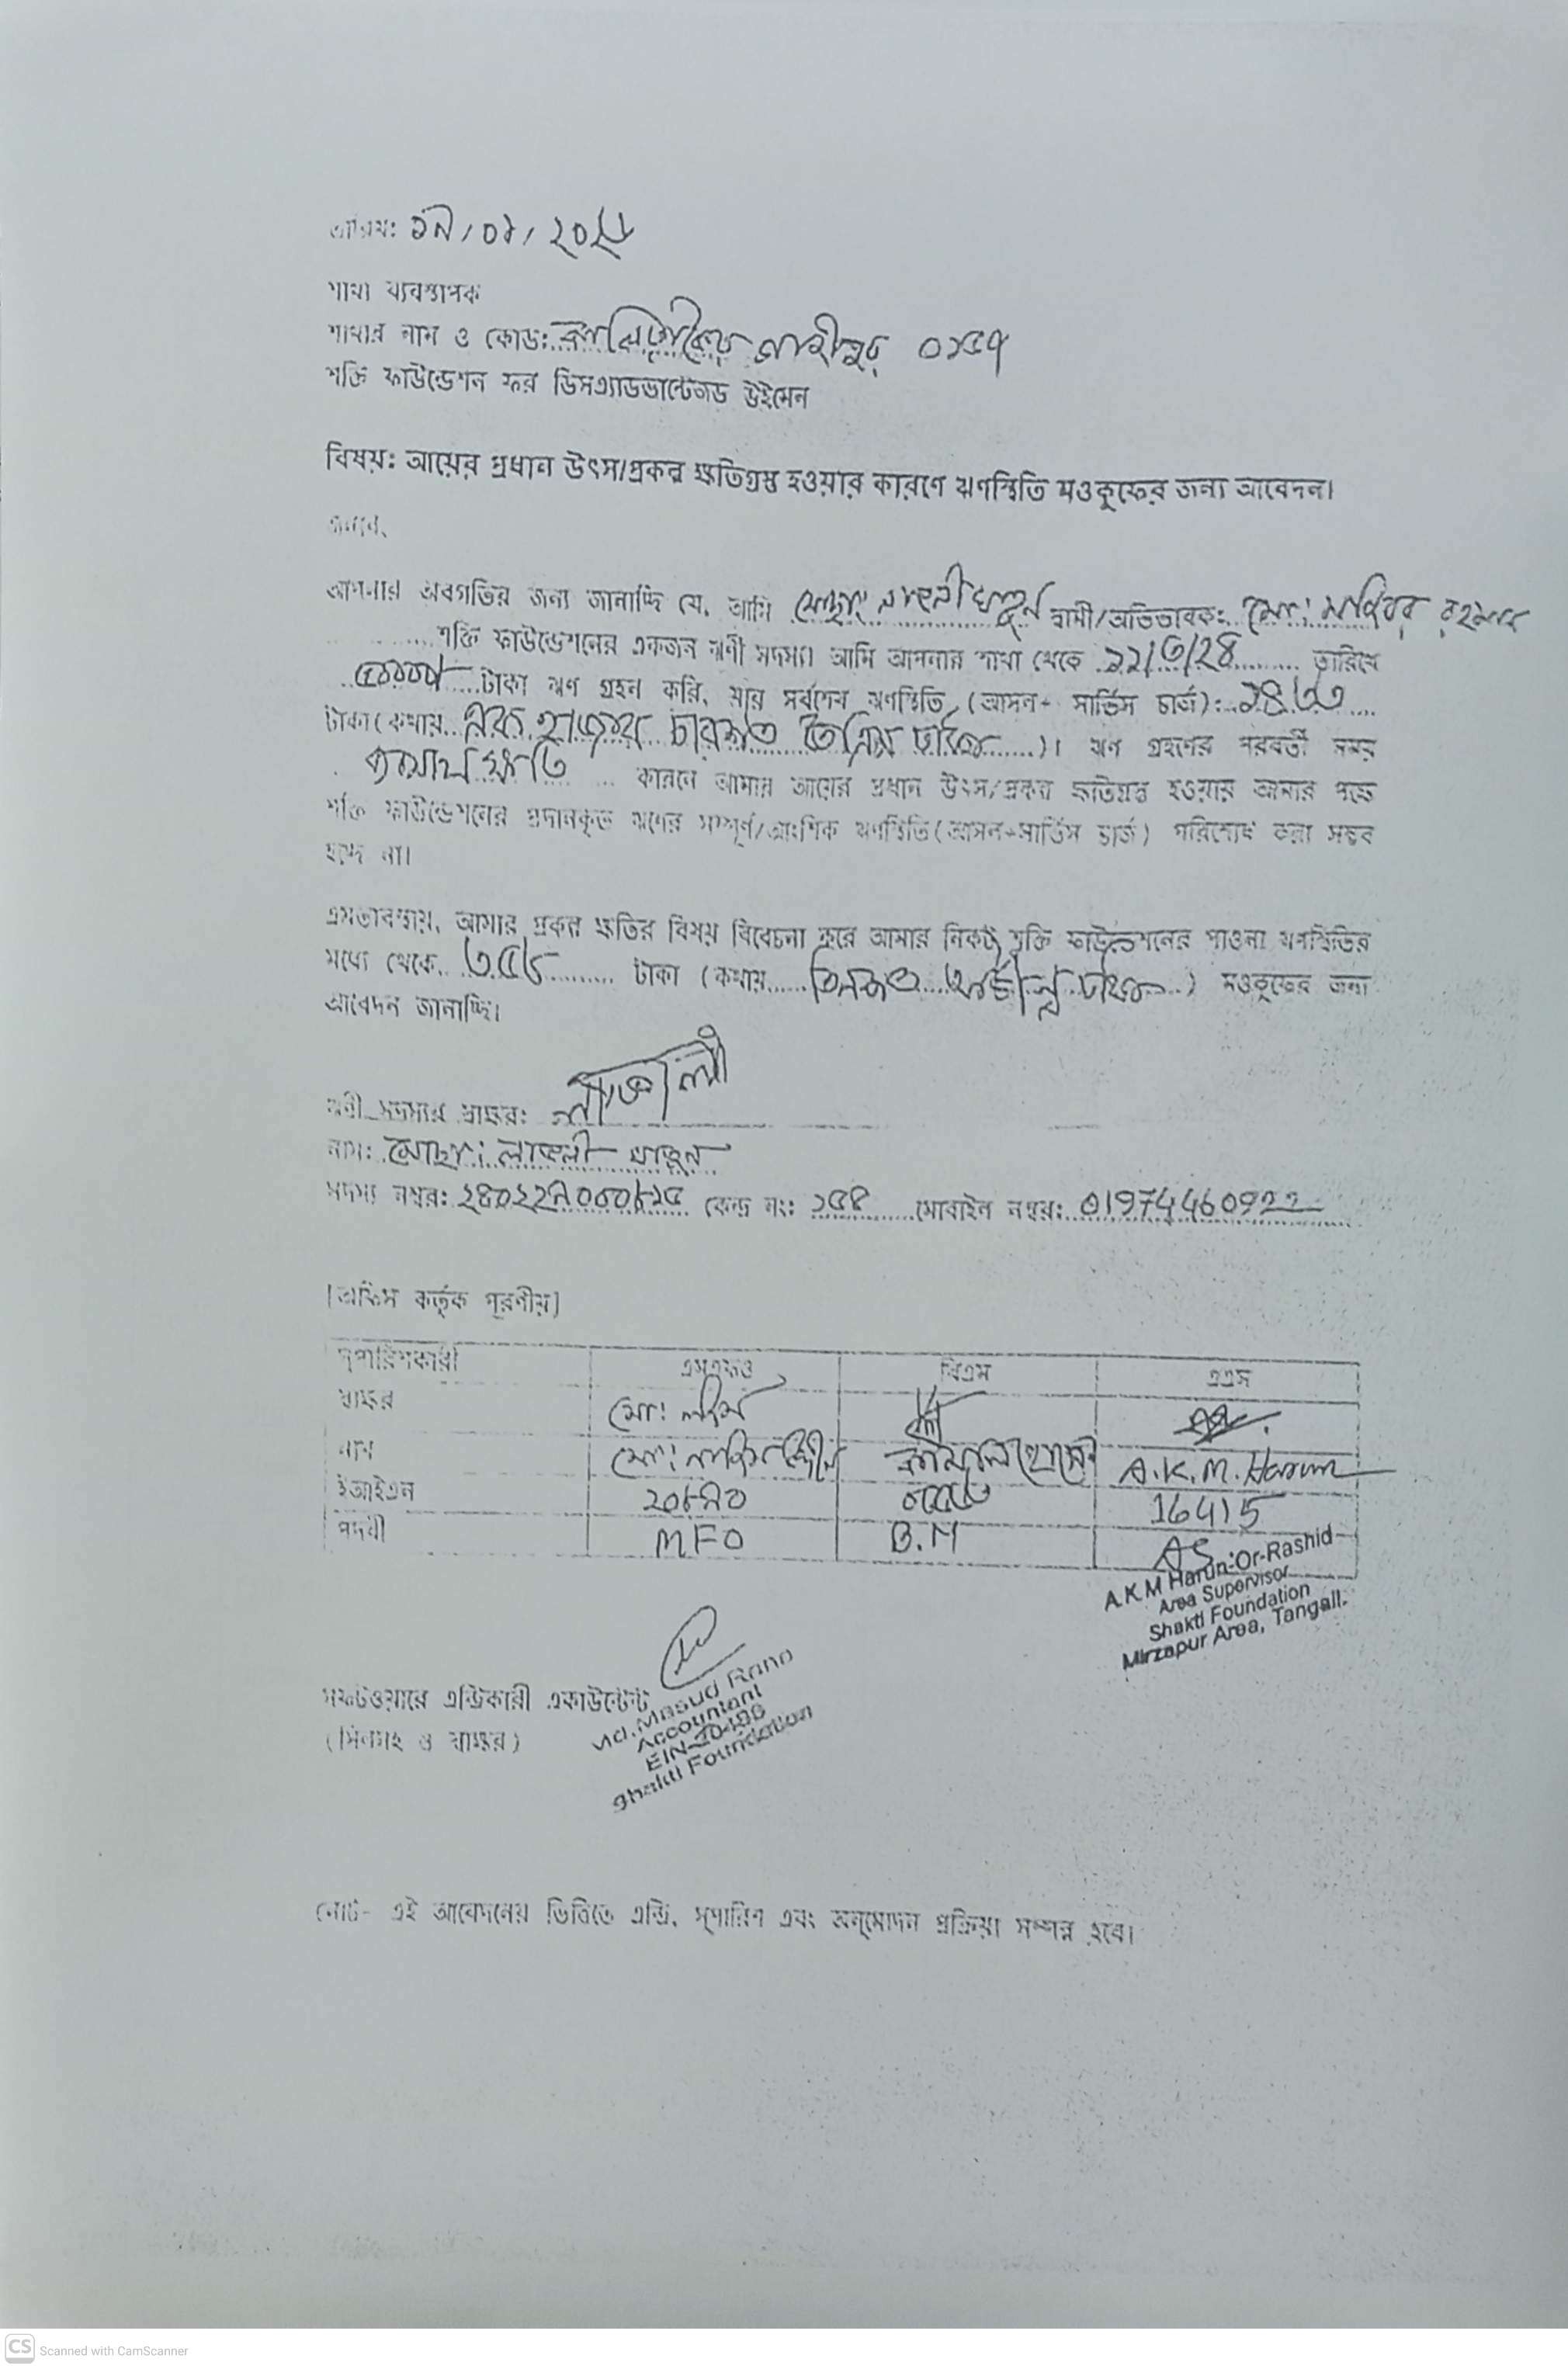 তারিখ: ১৭/০৯/২০২৫
শাখা ব্যবস্থাপক
শাখার নাম ও কোড: কালিয়াকৈর গাজীপুর ০১৫৭
শক্তি ফাউন্ডেশন ফর ডিসএ্যাডভান্টেজড উইমেন
বিষয়: আয়ের প্রধান উৎস/প্রকল্প ক্ষতিগ্রস্ত হওয়ার কারণে ঋণস্থিতি মওকুফের জন্য আবেদন।
জনাব,
আপনার অবগতির জন্য জানাচ্ছি যে, আমি মোছা: লাভলী খাতুন স্বামী/অভিভাবক: মো: রহমান
শক্তি ফাউন্ডেশনের একজন ঋণী সদস্য। আমি আপনার শাখা থেকে ১২/৩/২৪ তারিখে
৫০০০০/- টাকা ঋণ গ্রহন করি, যার সর্বশেষ ঋণস্থিতি (আসল+ সার্ভিস চার্জ): ১৪৩৩
টাকা (কথায় এক হাজার চারশত তেত্রিশ টাকা)। ঋণ গ্রহণের পরবর্তী সময়
ব্যবসায় ক্ষতি কারনে আমার আয়ের প্রধান উৎস/প্রকল্প ক্ষতিগ্রস্ত হওয়ায় আমার পক্ষে
শক্তি ফাউন্ডেশনের প্রদানকৃত ঋণের সম্পূর্ণ/আংশিক ঋণস্থিতি (আসল+সার্ভিস চার্জ) পরিশোধ করা সম্ভব
হচ্ছে না।
এমতাবস্থায়, আমার প্রকল্প ক্ষতির বিষয় বিবেচনা করে আমার নিকট শক্তি ফাউন্ডেশনের পাওনা ঋণস্থিতির
মধ্যে থেকে ৩৫৮ টাকা (কথায় তিনশত আটান্ন টাকা) মওকুফের জন্য
আবেদন জানাচ্ছি।
ঋণী সদস্যর স্বাক্ষর: লাভলী
নাম: মোছা: লাভলী খাতুন
সদস্য নম্বর: ২৪০২২৭০০০৮১৫ কেন্দ্র নং: ১৫৪ মোবাইল নম্বর: 01974460922
[অফিস কর্তৃক পূরণীয়]
সুপারিশকারী এসএফও বিএম এএস
স্বাক্ষর মো:
নাম মো: কামাল হোসেন A.K.M. Harun
ইআইএন ২০৮৭০ 16415
পদবী MFO B.M AS
A.K.M Harun-Or-Rashid
Area Supervisor
Shakti Foundation
Mirzapur Area, Tangail.
সফটওয়ারে এন্ট্রিকারী একাউন্টেন্ট
(সিলসহ ও স্বাক্ষর)
Md. Masud Rana
Accountant
EIN-20486
Shakti Foundation
নোট- এই আবেদনের ভিত্তিতে এন্ট্রি, সুপারিশ এবং অনুমোদন প্রক্রিয়া সম্পন্ন হবে।
CS Scanned with CamScanner